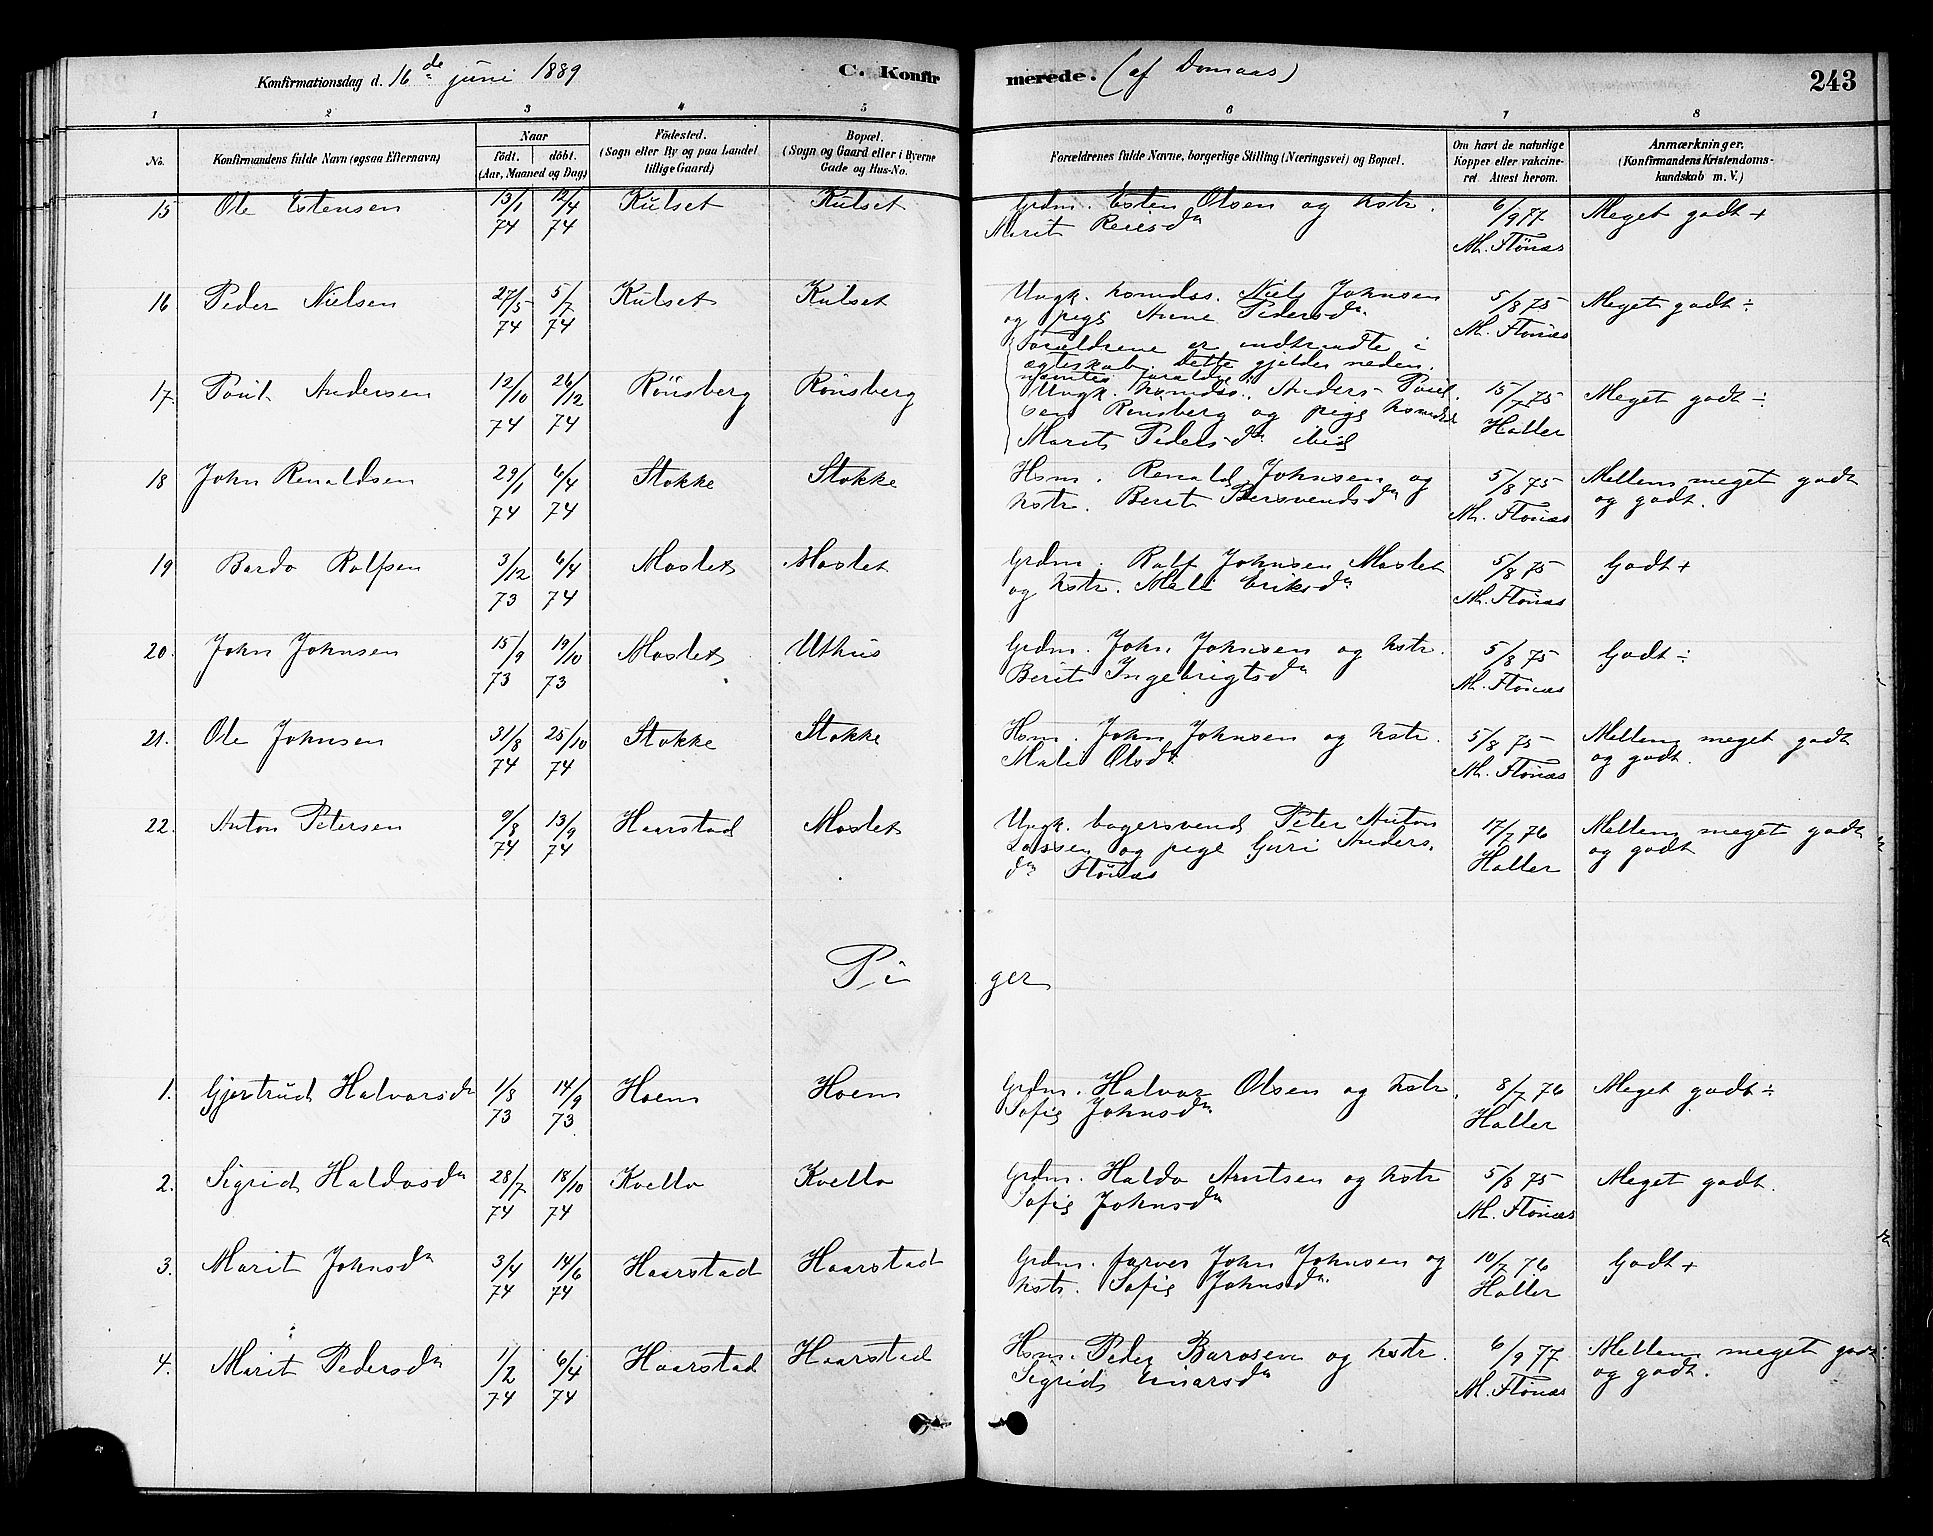 Konfirmationsdag d. 16de juni 1889 C. Konfirmerede. (af Domaas) 243
1 2 3 4 5 6 7 8
No. Konfirmandens fulde Navn (ogsaa Efternavn) Naar født. døbt. (Aar, Maaned og Dag) Födested. (Sogn eller By og paa Landet tillige Gaard) Bopæl. (Sogn og Gaard eller i Byerne Gade og Hus-No. Forældrenes fulde Navne, borgerlige Stilling (Næringsvei) og Bopæl. Om havt de naturlige Kopper eller vakcineret. Attest herom. Anmærkninger. (Konfirmandens Kristendomskundskab m. V.)
15 Ole Estensen 13/1 74 12/4 74 Kulset Kulset Grdm. Esten Olsen og kstr. 6/9 77 Meget godt +
Marit Reiersdr M. Flönæs
16 Peder Nielsen 27/5 74 5/7 74 Kulset Kulset Ungk. husmdss. Niels Johnsen 5/8 75 Meget godt ÷
og pige Anne Pedersdr. M. Flönæs
Forældrene er indtraadte i
egteskab. Dette gjelder neden-
nævnte forældre
17. Poul Andersen 12/10 74 26/12 74 Rönsberg Rönsberg Ungk. husmdss. Anders Poul- 15/7 75 Meget godt ÷
sen Rönsberg og pige Haller
Marit Pedersdr ibid
18 John Renaldsen 29/1 74 6/4 74 Stokke Stokke Hsm. Renald Johnsen og 5/8 75 Mellem meget godt
kstr. Berit Bersvendsdr M. Flönæs og godt.
19 Bardo Rolfsen 3/12 73 6/4 74 Moslet Moslet Grdm. Rolf Johnsen Moslet 5/8 75 Godt +
og kstr. Mali Eriksdr M. Flönæs
20. John Johnsen 15/9 73 19/10 73 Moslet Uthus Grdm. John Johnsen og kstr. 5/8 75 Godt ÷
Berit Ingebrigtsdr M. Flönæs
21. Ole Johnsen 31/8 74 25/10 74 Stokke Stokke Hsm. John Johnsen og kstr. 5/8 75 Mellem meget godt
Mali Olsdr M. Flönæs og godt.
22. Anton Petersen 9/8 74 13/9 74 Haarstad Moslet Ungk. bagersvend Peter Anton 17/7 76 Mellem meget godt
Lassen og pige Guri Anders- Haller og godt
dr Flönæs
Piger
1. Gjertrud Halvorsdr 1/8 73 14/9 73 Hoem Hoem Grdm. Halvor Olsen og kstr. 8/7 76 Meget godt ÷
Sofie Johnsdr Haller
2. Sigrid Haldosdr 28/7 74 18/10 74 Kvello Kvello Grdm. Haldo Arntsen og kstr 5/8 75 Meget godt.
Sofie Johnsdr M. Flönæs
3. Marit Johnsdr 3/4 74 14/6 74 Haarstad Haarstad Grdm. farver John Johnsen og 10/7 76 Godt +
kstr. Sofie Johnsdr. Haller
4. Marit Pedersdr 1/2 74 6/4 74 Haarstad Haarstad Hsm. Peder Barosen og kstr. 6/9 77 Mellem meget godt
Sigrid Einarsdr M. Flönæs og godt.